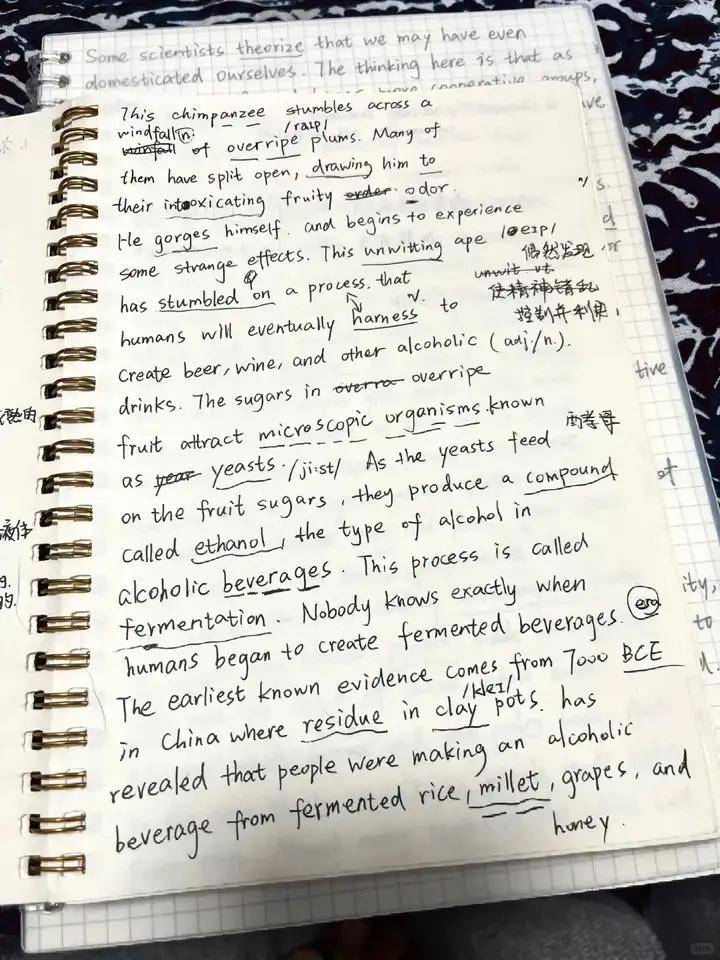 Some scientists theorize that we may have even
domesticated ourselves. The thinking here is that as
cooperative groups,
This chimpanzee stumbles across a
windfall n. /raɪp/
of overripe plums. Many of
them have split open, drawing him to
their intoxicating fruity odor.
He gorges himself. and begins to experience
some strange effects. This unwitting ape
偶然发现
has stumbled on a process. that
使精神错乱
humans will eventually harness v. to
控制并利用
create beer, wine, and other alcoholic (adj./n.).
drinks. The sugars in overripe
fruit attract microscopic organisms. known
酵母
as yeasts. /ji:st/ As the yeasts feed
on the fruit sugars, they produce a compound
called ethanol, the type of alcohol in
alcoholic beverages. This process is called
fermentation. Nobody knows exactly when
humans began to create fermented beverages. era
The earliest known evidence comes from 7000 BCE
/kleɪ/
in China where residue in clay pots. has
revealed that people were making an alcoholic
beverage from fermented rice, millet, grapes, and
honey.
tive
ity,
to
d.